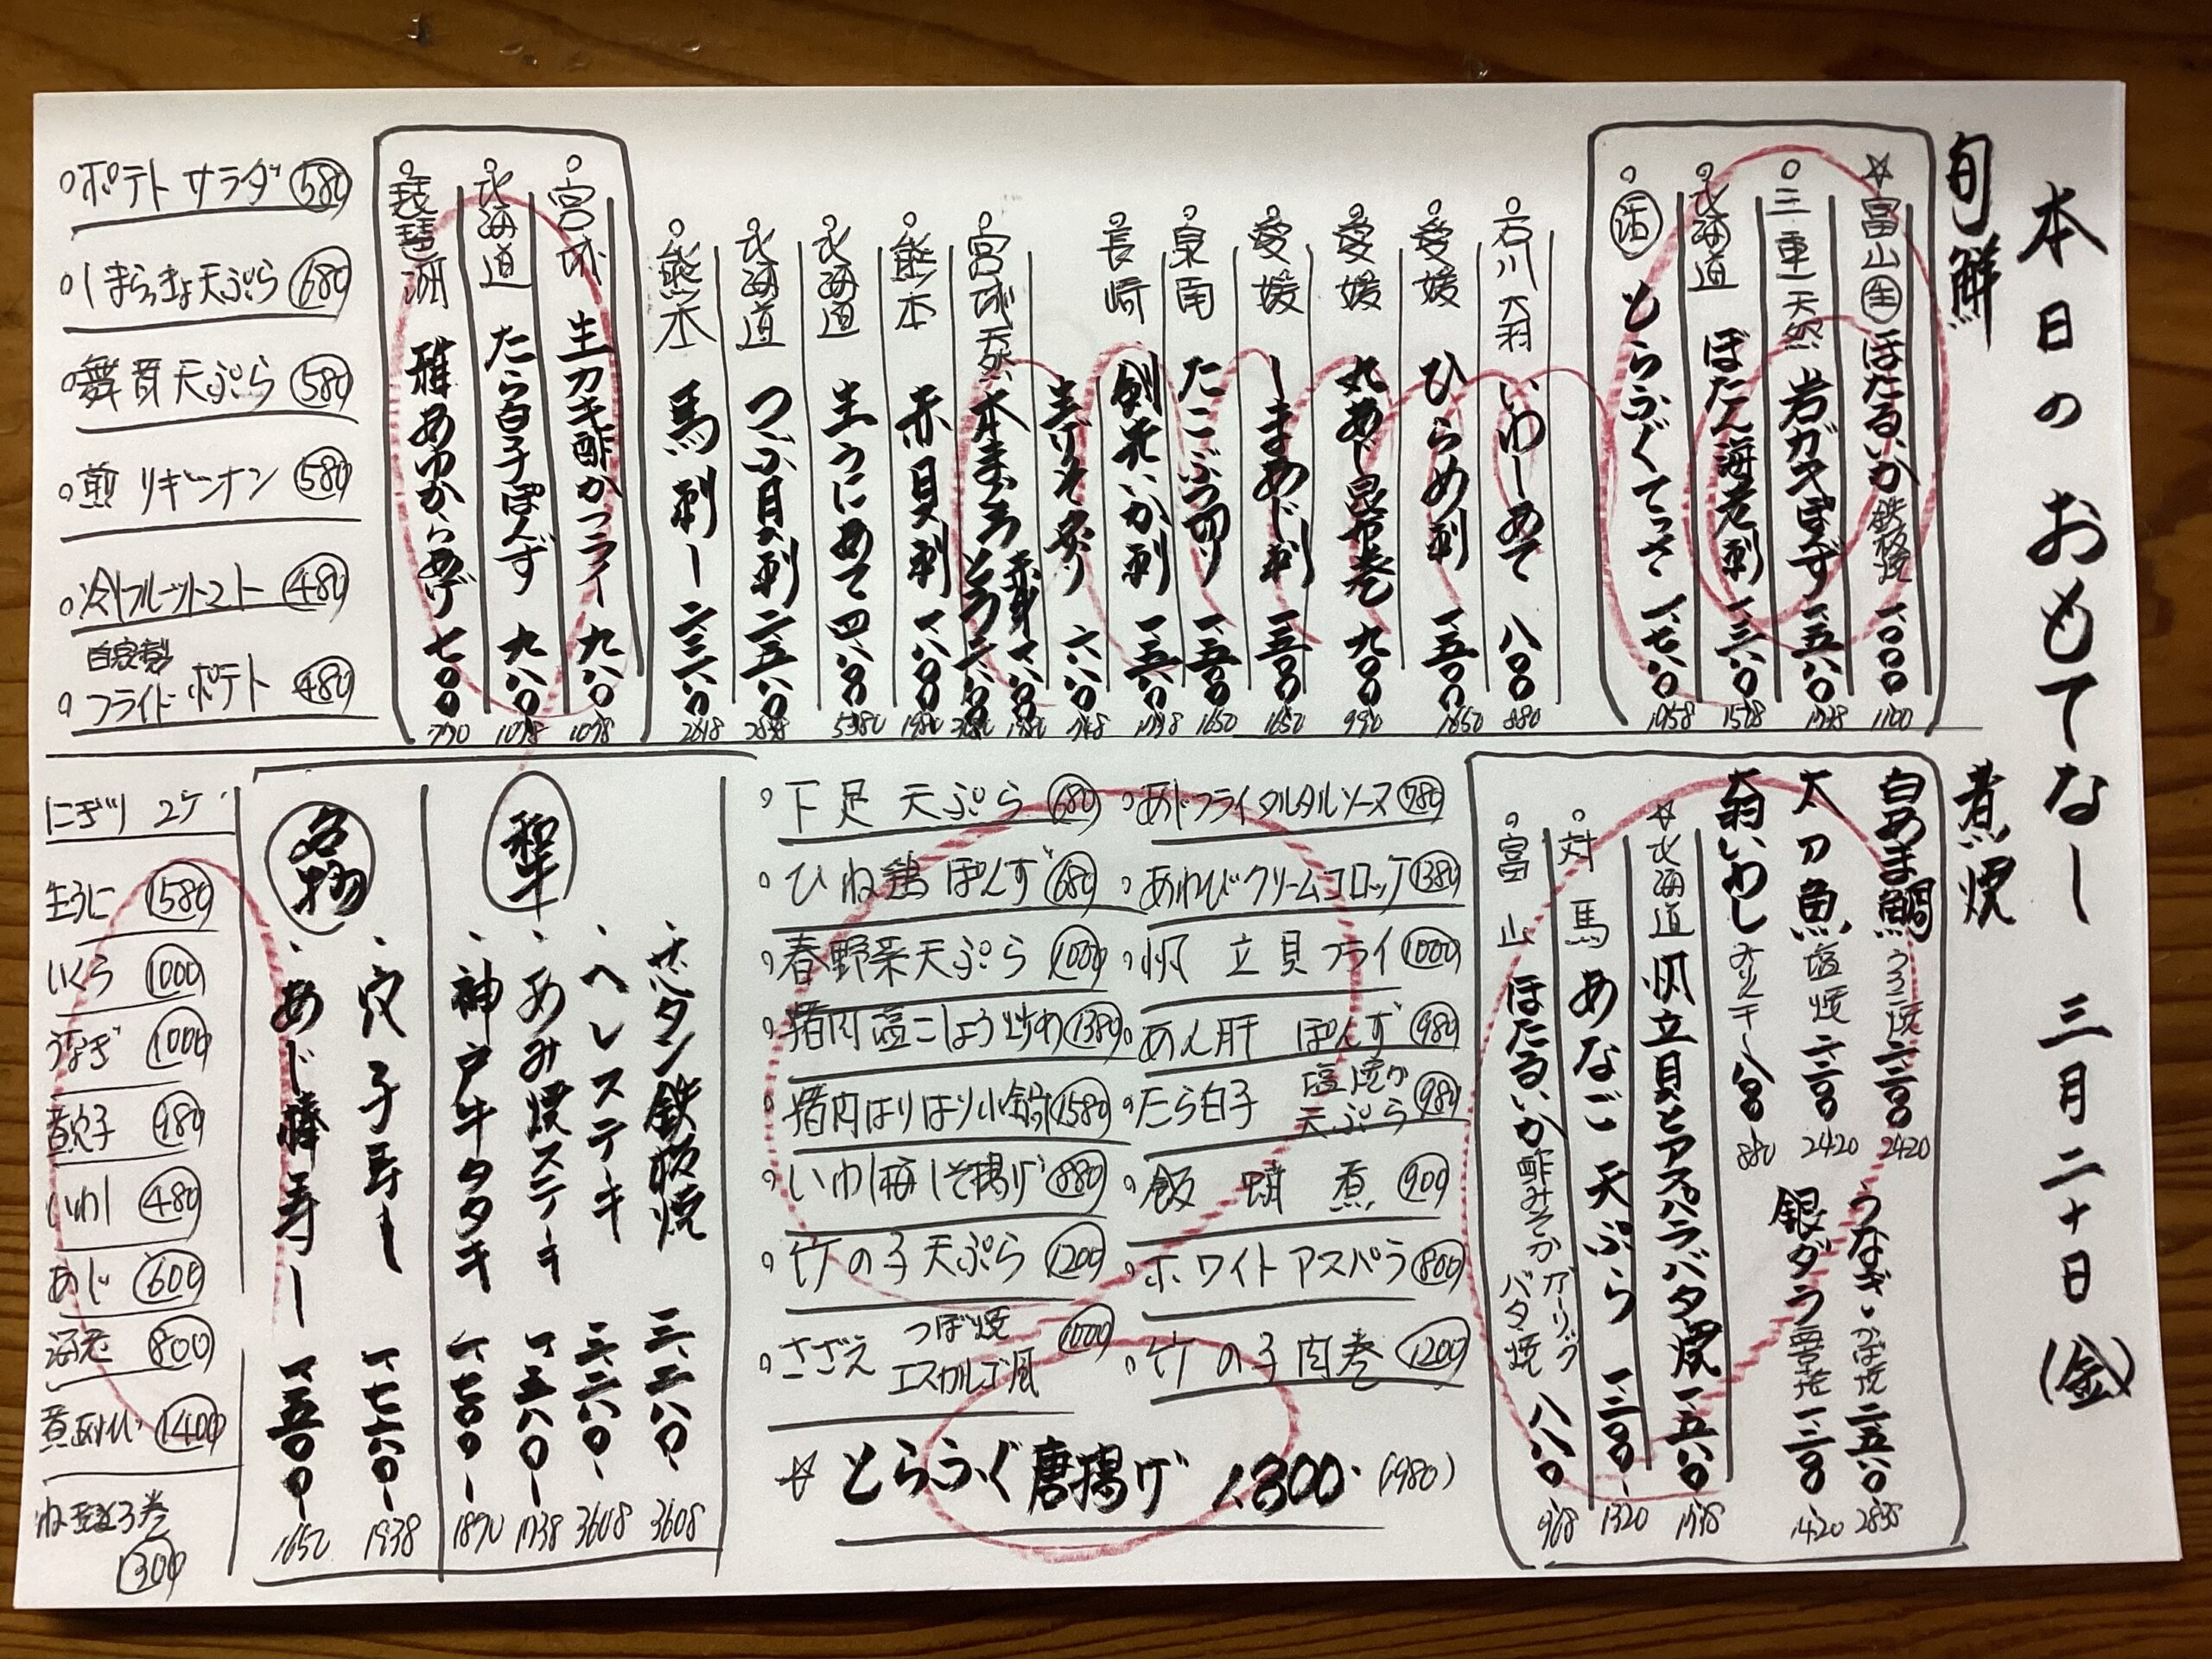 本日のおもてなし 三月二十日(金)
旬鮮
☆富山 生 ほたるいか 鉄板焼 一、〇〇〇 1100
三重天然 岩ガキぽんず 一、五八〇 1738
北海道 ぼたん海老刺 一、三八〇 1518
活 とらふぐてっさ 一、七八〇 1958
石川大羽 いわしあて 八〇〇 880
愛媛 ひらめ刺 一、五〇〇 1650
愛媛 丸あじ昆布巻 九〇〇 990
愛媛 しまあじ刺 一、五〇〇 1650
泉南 たこぶつ切り 一、五〇〇 1650
長崎 剣先いか刺 一、五八〇 1738
生げそ炙り 六八〇 748
宮城天然 本まぐろ 赤身 一、八〇〇 1980
とろ 二、八〇〇 3080
熊本 赤貝刺 一、八〇〇 1980
北海道 生うにあて 四、八〇〇 5280
北海道 つぶ貝刺 二、五八〇 2838
熊本 馬刺し 二、三八〇 2618
宮城 生カキ酢かフライ 九八〇 1078
北海道 たら白子ぽんず 九八〇 1078
琵琶湖 稚あゆからあげ 七〇〇 770
ポテトサラダ 580
しまらっきょ天ぷら 680
舞茸天ぷら 580
煎りギンナン 580
冷フルーツトマト 480
自家製
フライドポテト 480
煮焼
白あま鯛 うろこ焼 二、二〇〇 2420
太刀魚 塩焼 二、二〇〇 2420
大羽いわし みりん干し 八〇〇 880
うなぎ・かば焼 二、五八〇 2838
銀ダラ 西京焼 一、三〇〇 1420
☆北海道 帆立貝とアスパラバタ焼 一、五八〇 1738
対馬 あなご天ぷら 一、二〇〇 1320
富山 ほたるいか 酢みそか ガーリックバタ焼 八八〇 968
あじフライタルタルソース 780
あわびクリームコロッケ 1380
帆立貝フライ 1000
あん肝 ぽんず 980
たら白子 塩焼か 天ぷら 980
飯蛸煮 900
ホワイトアスパラ 800
竹の子肉巻 1200
下足天ぷら 680
ひね鶏ぽんず 680
春野菜天ぷら 1000
猪肉塩こしょう炒め 1380
猪肉はりはり小鍋 1580
いわし梅しそ揚げ 880
竹の子天ぷら 1200
さざえ つぼ焼 エスカルゴ風 1000
☆とらふぐ唐揚げ 1,800 (1980)
和牛
・さがりタン鉄板焼 三、二八〇 3608
・ヘレステーキ 三、二八〇 3608
・あみ焼ステーキ 一、五八〇 1738
・神戸牛タタキ 一、七〇〇 1870
名物
・穴子寿し 一、七六〇 1938
・あじ棒寿し 一、五〇〇 1650
にぎり 2ケ
生うに 1580
いくら 1000
うなぎ 1000
煮穴子 980
いわし 480
あじ 600
海老 800
煮あわび 1400
1300